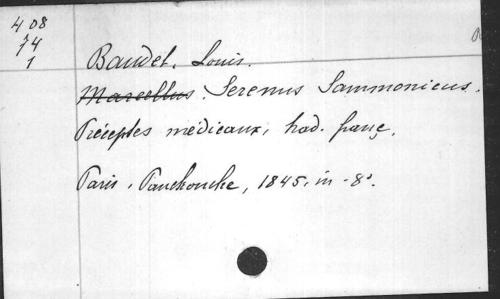 408
74
1
Baudet. Louis.
Marcellus. Serenus Sammonicus.
Préceptes médicaux, trad. franç.
Paris, Panckoucke, 1845, in-8°.